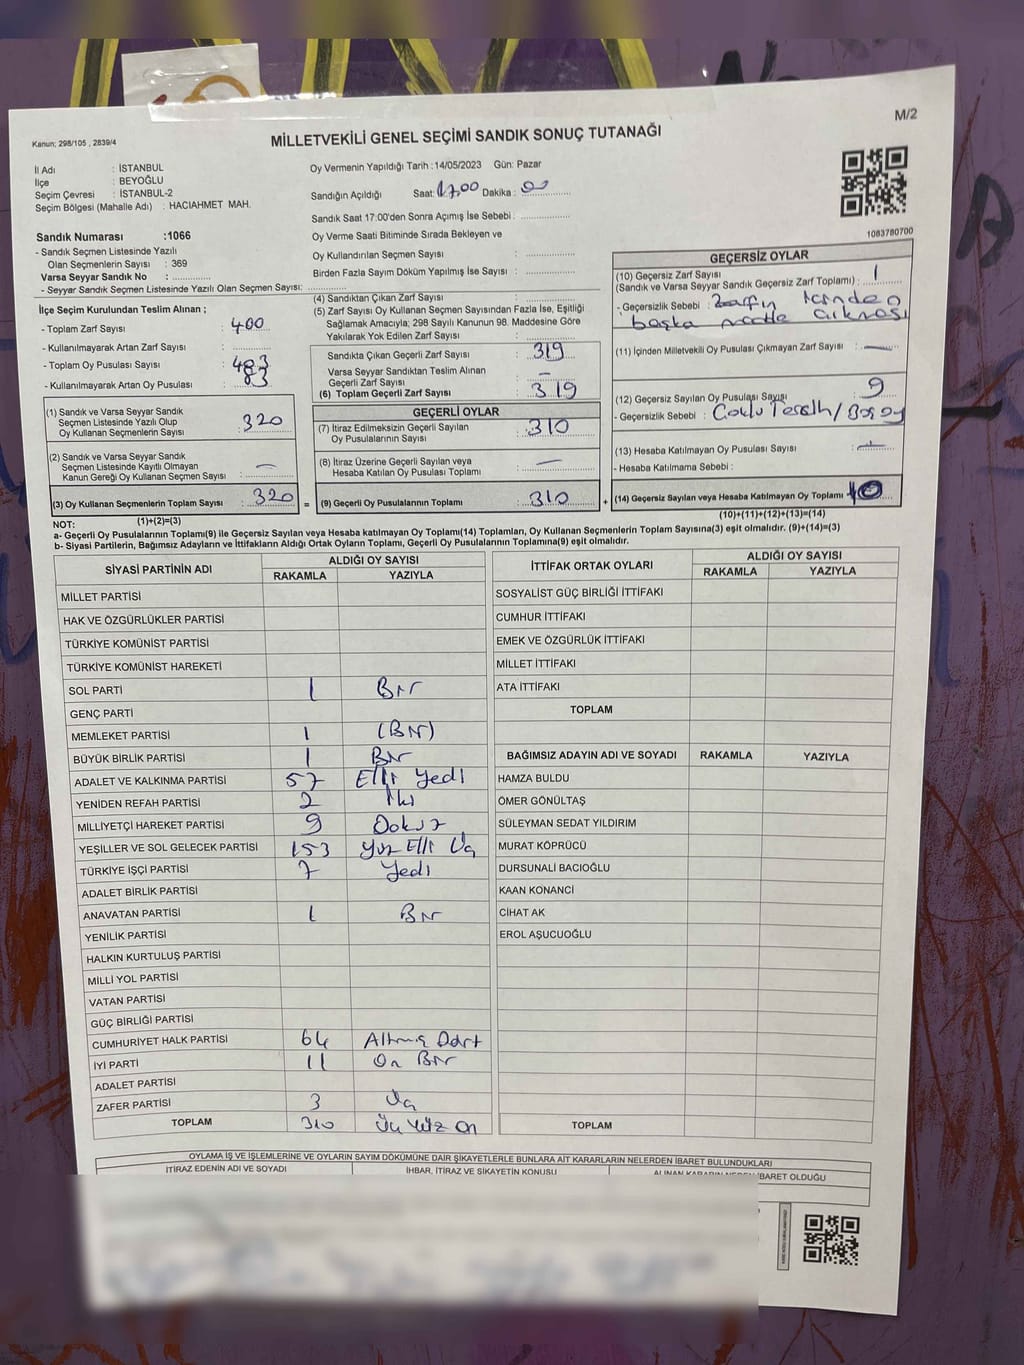 M/2
Kanun; 298/105 , 2839/4
MİLLETVEKİLİ GENEL SEÇİMİ SANDIK SONUÇ TUTANAĞI
İl Adı : İSTANBUL
İlçe : BEYOĞLU
Seçim Çevresi : İSTANBUL-2
Seçim Bölgesi (Mahalle Adı) : HACIAHMET MAH.
Oy Vermenin Yapıldığı Tarih :14/05/2023 Gün: Pazar
Sandığın Açıldığı Saat: 17,00 Dakika : 00
Sandık Saat 17:00'den Sonra Açımış İse Sebebi :
Oy Verme Saati Bitiminde Sırada Bekleyen ve
Oy Kullandırılan Seçmen Sayısı :
Birden Fazla Sayım Döküm Yapılmış İse Sayısı :
1083780700
Sandık Numarası :1066
- Sandık Seçmen Listesinde Yazılı
Olan Seçmenlerin Sayısı : 369
Varsa Seyyar Sandık No :
- Seyyar Sandık Seçmen Listesinde Yazılı Olan Seçmen Sayısı:
İlçe Seçim Kurulundan Teslim Alınan ;
- Toplam Zarf Sayısı : 400
- Kullanılmayarak Artan Zarf Sayısı :
- Toplam Oy Pusulası Sayısı : 483
- Kullanılmayarak Artan Oy Pusulası : 83
(1) Sandık ve Varsa Seyyar Sandık
Seçmen Listesinde Yazılı Olup
Oy Kullanan Seçmenlerin Sayısı : 320
(2) Sandık ve Varsa Seyyar Sandık
Seçmen Listesinde Kayıtlı Olmayan
Kanun Gereği Oy Kullanan Seçmen Sayısı : —
(3) Oy Kullanan Seçmenlerin Toplam Sayısı : 320
(1)+(2)=(3)
(4) Sandıktan Çıkan Zarf Sayısı :
(5) Zarf Sayısı Oy Kullanan Seçmen Sayısından Fazla İse, Eşitliği
Sağlamak Amacıyla; 298 Sayılı Kanunun 98. Maddesine Göre
Yakılarak Yok Edilen Zarf Sayısı :
Sandıkta Çıkan Geçerli Zarf Sayısı : 319
Varsa Seyyar Sandıktan Teslim Alınan
Geçerli Zarf Sayısı : —
(6) Toplam Geçerli Zarf Sayısı : 319
GEÇERLİ OYLAR
(7) İtiraz Edilmeksizin Geçerli Sayılan
Oy Pusulalarının Sayısı : 310
(8) İtiraz Üzerine Geçerli Sayılan veya
Hesaba Katılan Oy Pusulası Toplamı : —
= (9) Geçerli Oy Pusulalarının Toplamı : 310
GEÇERSİZ OYLAR
(10) Geçersiz Zarf Sayısı
(Sandık ve Varsa Seyyar Sandık Geçersiz Zarf Toplamı) : 1
- Geçersizlik Sebebi : Zarfın içinden
başka madde çıkması
(11) İçinden Milletvekili Oy Pusulası Çıkmayan Zarf Sayısı : —
(12) Geçersiz Sayılan Oy Pusulası Sayısı : 9
- Geçersizlik Sebebi : Çoklu Tercih/Boş oy
(13) Hesaba Katılmayan Oy Pusulası Sayısı : —
- Hesaba Katılmama Sebebi :
+ (14) Geçersiz Sayılan veya Hesaba Katılmayan Oy Toplamı : 10
(10)+(11)+(12)+(13)=(14)
NOT:
a- Geçerli Oy Pusulalarının Toplamı(9) ile Geçersiz Sayılan veya Hesaba katılmayan Oy Toplamı(14) Toplamları, Oy Kullanan Seçmenlerin Toplam Sayısına(3) eşit olmalıdır. (9)+(14)=(3)
b- Siyasi Partilerin, Bağımsız Adayların ve İttifakların Aldığı Ortak Oyların Toplamı, Geçerli Oy Pusulalarının Toplamına(9) eşit olmalıdır.
SİYASİ PARTİNİN ADI ALDIĞI OY SAYISI
RAKAMLA YAZIYLA
MİLLET PARTİSİ
HAK VE ÖZGÜRLÜKLER PARTİSİ
TÜRKİYE KOMÜNİST PARTİSİ
TÜRKİYE KOMÜNİST HAREKETİ
SOL PARTİ 1 Bir
GENÇ PARTİ
MEMLEKET PARTİSİ 1 (Bir)
BÜYÜK BİRLİK PARTİSİ 1 Bir
ADALET VE KALKINMA PARTİSİ 57 Elli Yedi
YENİDEN REFAH PARTİSİ 2 İki
MİLLİYETÇİ HAREKET PARTİSİ 9 Dokuz
YEŞİLLER VE SOL GELECEK PARTİSİ 153 Yüz Elli Üç
TÜRKİYE İŞÇİ PARTİSİ 7 Yedi
ADALET BİRLİK PARTİSİ
ANAVATAN PARTİSİ 1 Bir
YENİLİK PARTİSİ
HALKIN KURTULUŞ PARTİSİ
MİLLİ YOL PARTİSİ
VATAN PARTİSİ
GÜÇ BİRLİĞİ PARTİSİ
CUMHURİYET HALK PARTİSİ 64 Altmış Dört
İYİ PARTİ 11 On Bir
ADALET PARTİSİ
ZAFER PARTİSİ 3 Üç
TOPLAM 310 Üç Yüz On
İTTİFAK ORTAK OYLARI ALDIĞI OY SAYISI
RAKAMLA YAZIYLA
SOSYALİST GÜÇ BİRLİĞİ İTTİFAKI
CUMHUR İTTİFAKI
EMEK VE ÖZGÜRLÜK İTTİFAKI
MİLLET İTTİFAKI
ATA İTTİFAKI
TOPLAM
BAĞIMSIZ ADAYIN ADI VE SOYADI RAKAMLA YAZIYLA
HAMZA BULDU
ÖMER GÖNÜLTAŞ
SÜLEYMAN SEDAT YILDIRIM
MURAT KÖPRÜCÜ
DURSUNALİ BACIOĞLU
KAAN KONANCİ
CİHAT AK
EROL AŞUCUOĞLU
TOPLAM
OYLAMA İŞ VE İŞLEMLERİNE VE OYLARIN SAYIM DÖKÜMÜNE DAİR ŞİKAYETLERLE BUNLARA AİT KARARLARIN NELERDEN İBARET BULUNDUKLARI
İTİRAZ EDENİN ADI VE SOYADI İHBAR, İTİRAZ VE ŞİKAYETİN KONUSU ALINAN KARARIN NEDEN İBARET OLDUĞU